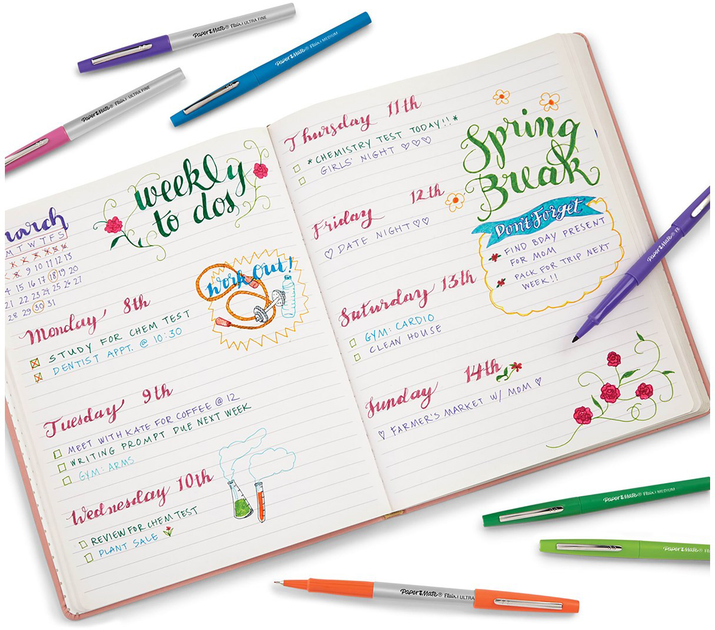 PAPER MATE® Flair. / ULTRA FINE
PAPER MATE® Flair. / MEDIUM
PAPER MATE® Flair. / ULTRA FINE
weekly
to dos
march
M T W T F S
9 10 11 12 13
28 29 30 31
Work Out!
Monday 8th
STUDY FOR CHEM TEST
DENTIST APPT. @ 10:30
Tuesday 9th
MEET WITH KATE FOR COFFEE @ 12
WRITING PROMPT DUE NEXT WEEK
GYM: ARMS
Wednesday 10th
REVIEW FOR CHEM TEST
PLANT SALE
Thursday 11th
*CHEMISTRY TEST TODAY!!*
GIRLS' NIGHT ♡♡♡
Friday 12th
♡ DATE NIGHT ♡♡
Saturday 13th
GYM: CARDIO
CLEAN HOUSE
Sunday 14th
♡ FARMER'S MARKET W/ MOM ♡
Spring
Break
Don't Forget
FIND BDAY PRESENT
FOR MOM
PACK FOR TRIP NEXT
WEEK!!
PAPER MATE®
PAPER MATE® Flair. / MEDIUM
PAPER MATE® Flair. / MEDIUM
PAPER MATE® Flair. / ULTRA